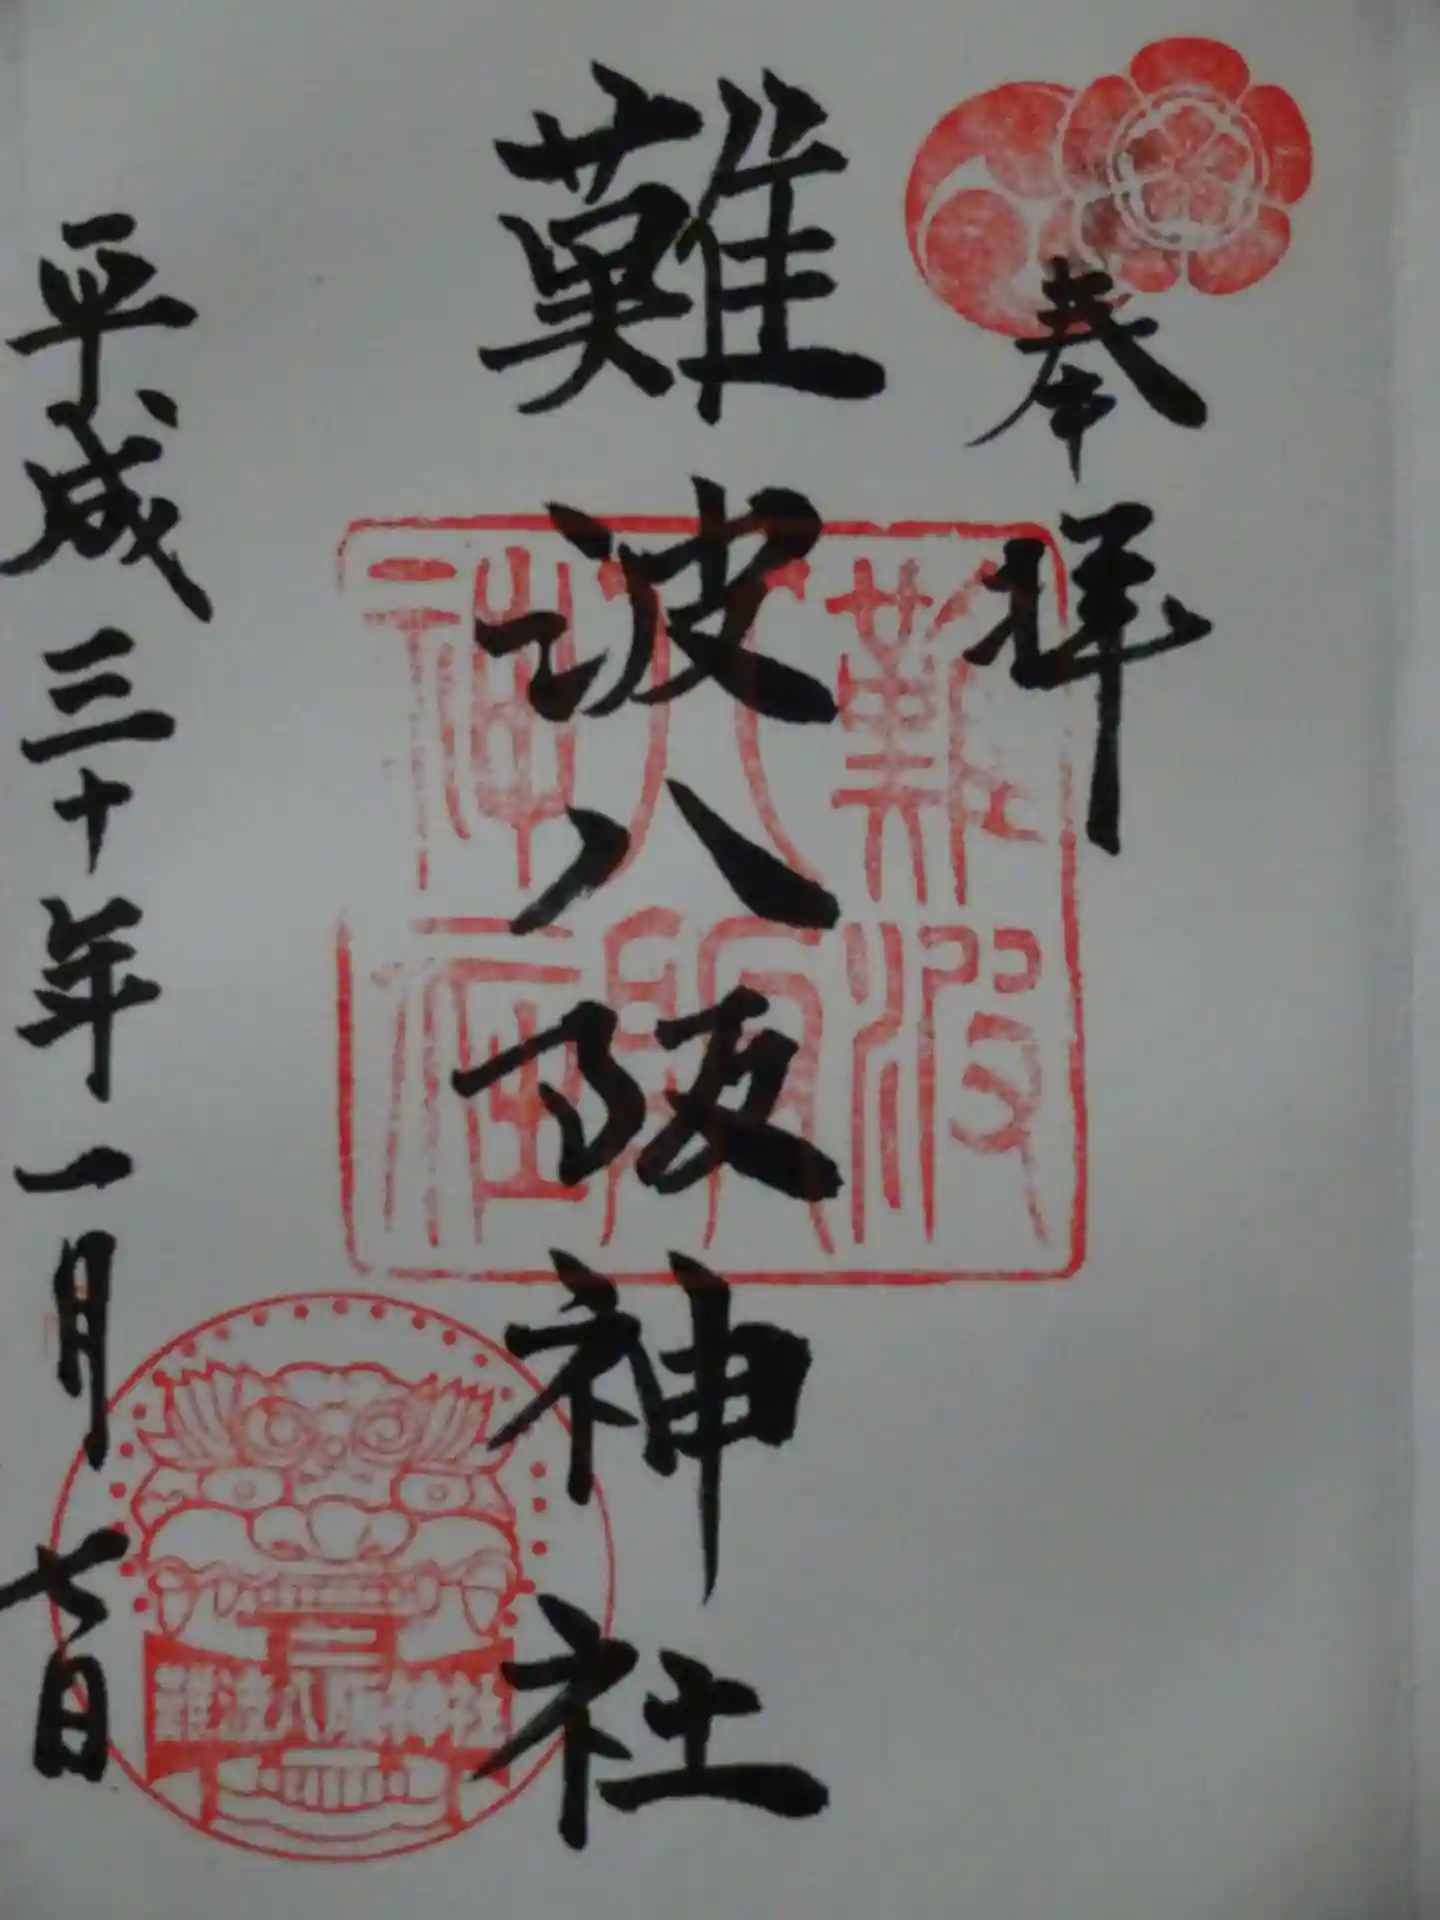 奉拝
難波八阪神社
難波八阪神社
平成三十年一月七日
難波八阪神社